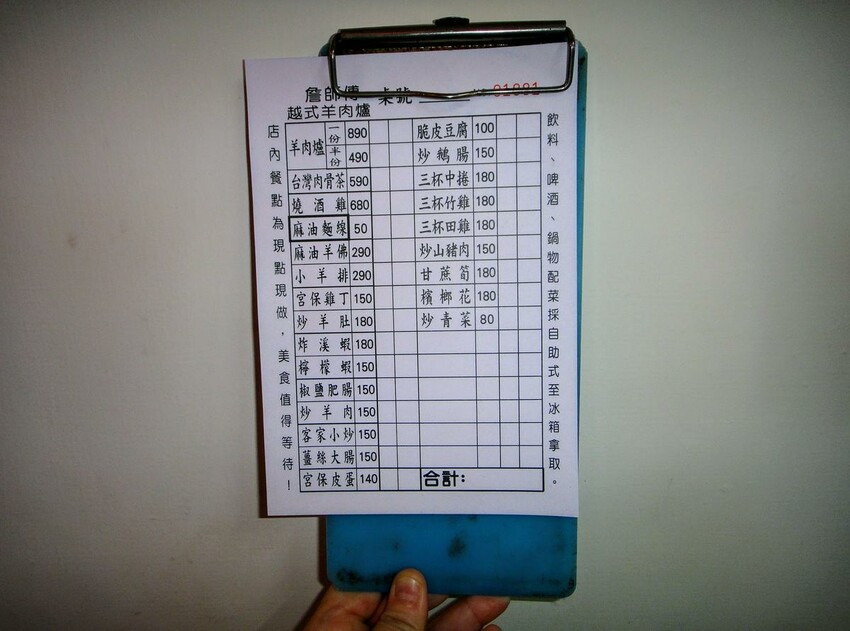 詹師傅 桌號 № 01081
越式羊肉爐
店內餐點為現點現做，美食值得等待！
羊肉爐 一份 890
半份 490
台灣肉骨茶 590
燒酒雞 680
麻油麵線 50
麻油羊佛 290
小羊排 290
宮保雞丁 150
炒羊肚 180
炸溪蝦 180
檸檬蝦 150
椒鹽肥腸 150
炒羊肉 150
客家小炒 150
薑絲大腸 150
宮保皮蛋 140
脆皮豆腐 100
炒鵝腸 150
三杯中捲 180
三杯竹雞 180
三杯田雞 180
炒山豬肉 150
甘蔗筍 180
檳榔花 180
炒青菜 80
合計：
飲料、啤酒、鍋物配菜採自助式至冰箱拿取。